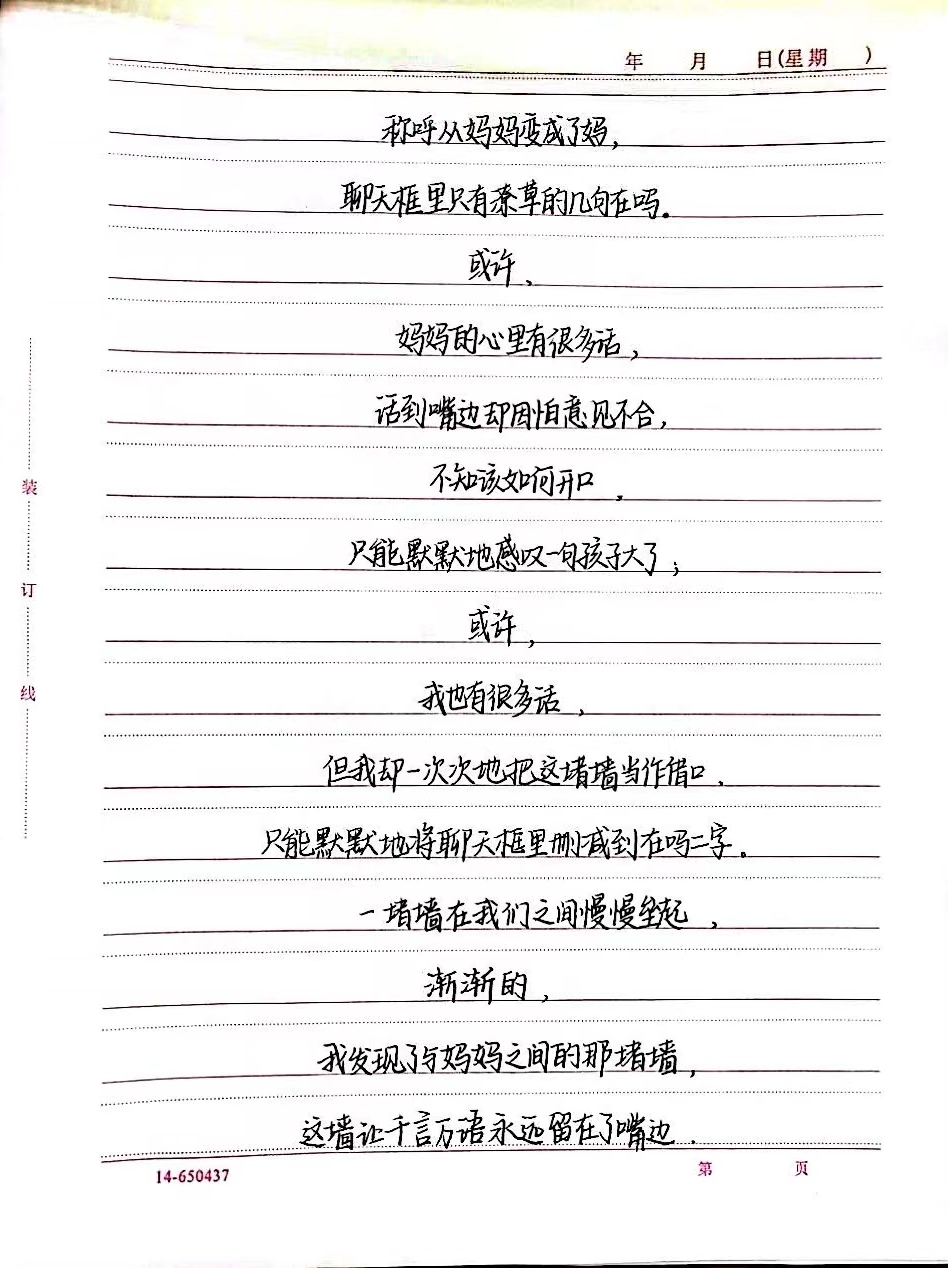 年 月 日(星期 )
称呼从妈妈变成了妈,
聊天框里只有潦草的几句在吗。
或许、
妈妈的心里有很多话,
话到嘴边却因怕意见不合,
不知该如何开口,
只能默默地感叹一句孩子大了;
或许,
我也有很多话,
但我却一次次地把这堵墙当作借口.
只能默默地将聊天框里删减到在吗二字。
一堵墙在我们之间慢慢垒起,
渐渐的,
我发现了与妈妈之间的那堵墙,
这墙让千言万语永远留在了嘴边.
14-650437 第 页
装
订
线